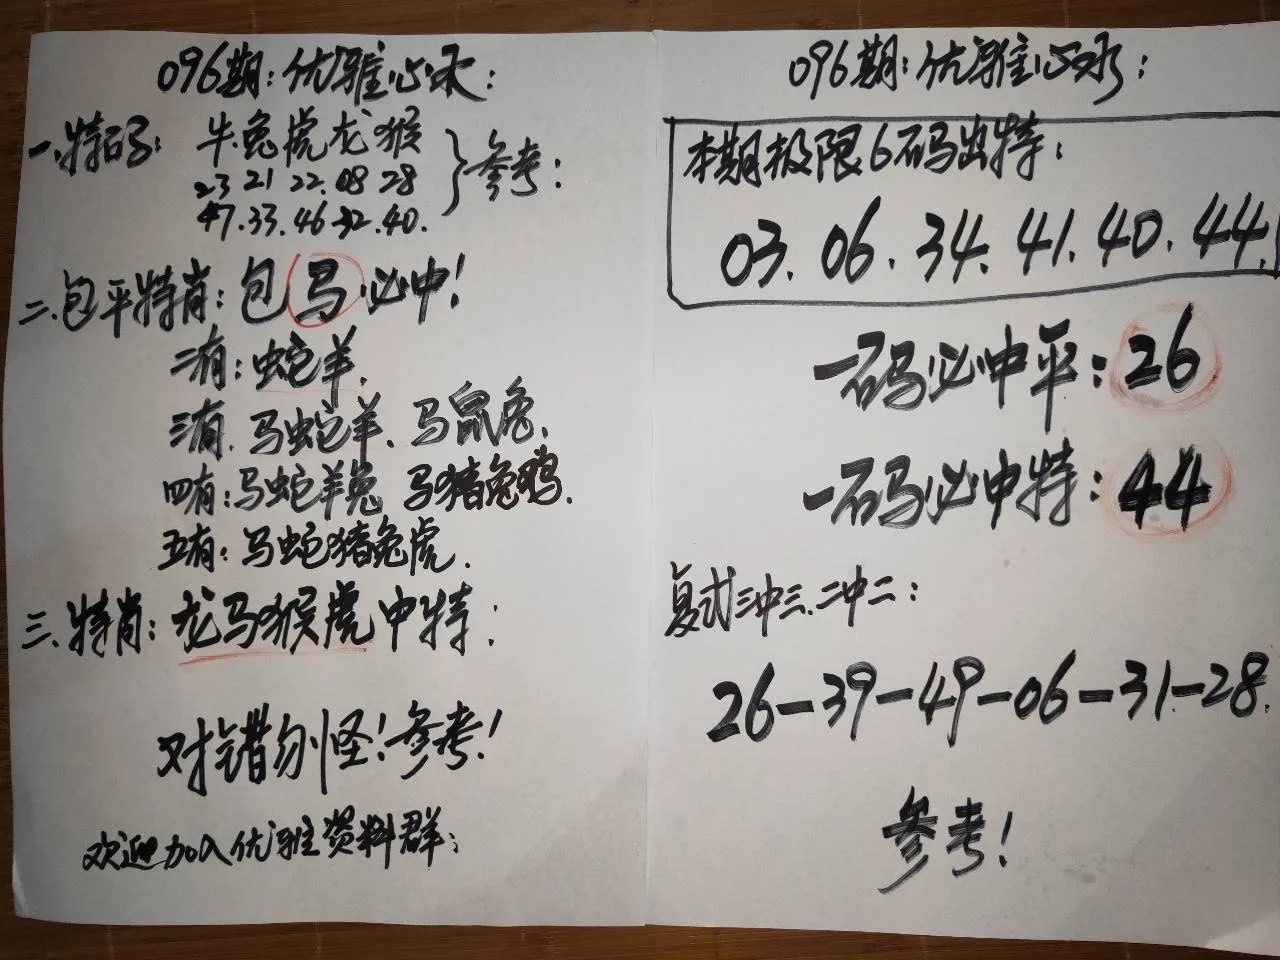 096期:优雅心水:
一.特码: 牛兔虎龙猴
23 21 22.08 28
47.33.46 32.40.
参考:
二.包平特肖: 包马必中!
二有: 蛇羊.
三有. 马蛇羊、马鼠兔.
四有: 马蛇羊兔 马猪兔鸡.
五有: 马蛇猪兔虎.
三.特肖: 龙马猴虎中特:
对错勿怪!参考!
欢迎加入优雅资料群:
096期:优雅心水:
本期极限6码出特:
03.06.34.41.40.44.
一码必中平: 26
一码必中特: 44
复式三中三.二中二:
26-39-49-06-31-28.
参考!